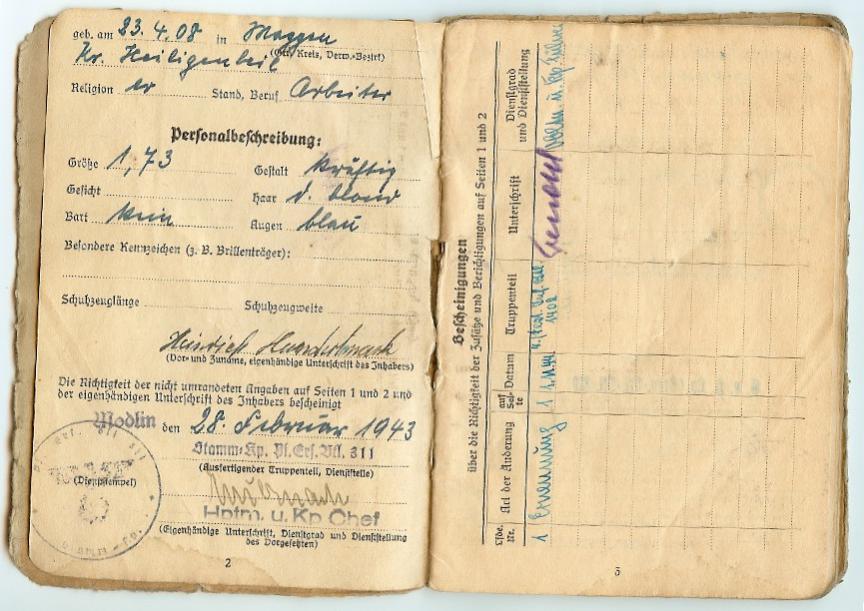 geb. am 23.4.08 in Maggen
(Ort, Kreis, Verw.-Bezirk)
Kr. Heiligenbeil
Religion ev Stand, Beruf Arbeiter
Personalbeschreibung:
Größe 1,73 Gestalt kräftig
Gesicht Haar d. blond
Bart kein Augen blau
Besondere Kennzeichen (z. B. Brillenträger):
Schuhzeuglänge Schuhzeugweite
Heinrich
(Vor- und Zuname, eigenhändige Unterschrift des Inhabers)
Die Richtigkeit der nicht umrandeten Angaben auf Seiten 1 und 2 und
der eigenhändigen Unterschrift des Inhabers bescheinigt
Modlin den 28. Februar 1943
Stamm-Kp. Pi.Ers.Btl. 311
(Ausfertigender Truppenteil, Dienststelle)
(Dienststempel)
Hptm. u. Kp Chef
(Eigenhändige Unterschrift, Dienstgrad und Dienststellung
des Vorgesetzten)
2
Bescheinigungen
über die Richtigkeit der Zusätze und Berichtigungen auf Seiten 1 und 2
Lfde. Nr. Art der Änderung auf Sei-te Datum Truppenteil Unterschrift Dienstgrad und Dienststellung
1 Ernennung 1
3